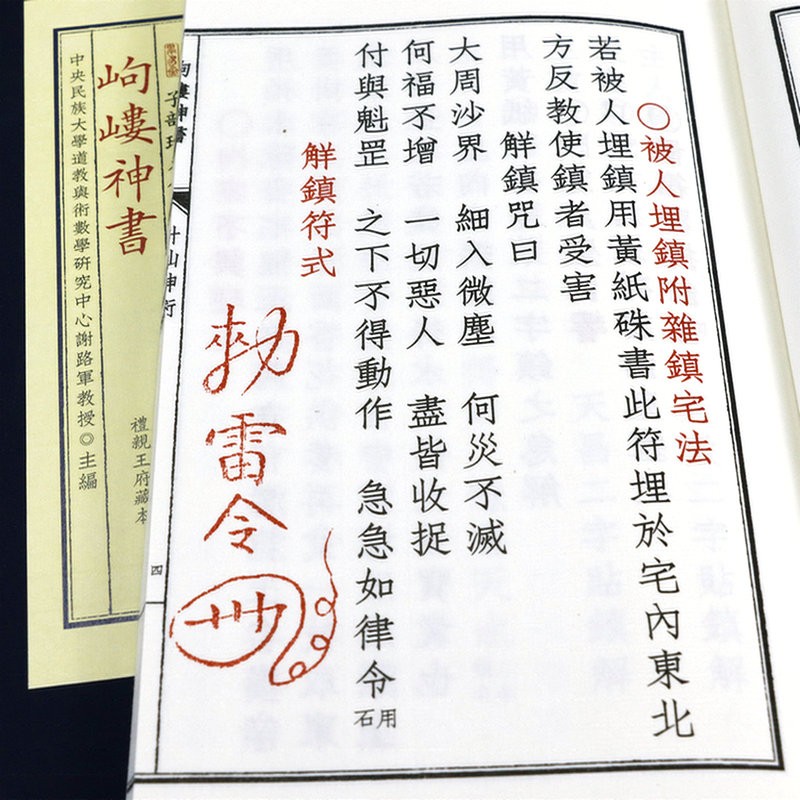 ○被人埋鎮附雜鎮宅法
若被人埋鎮用黃紙硃書此符埋於宅內東北
方反教使鎮者受害
解鎮咒曰
大周沙界 細入微塵 何災不滅
何福不增 一切惡人 盡皆收捉
付與魁罡 之下不得動作 急急如律令用石
解鎮符式
勑雷令
岣嶁神書
四
子部珍
禮親王府藏本
岣嶁神書
中央民族大學道教與術數學研究中心謝路軍教授◎主編